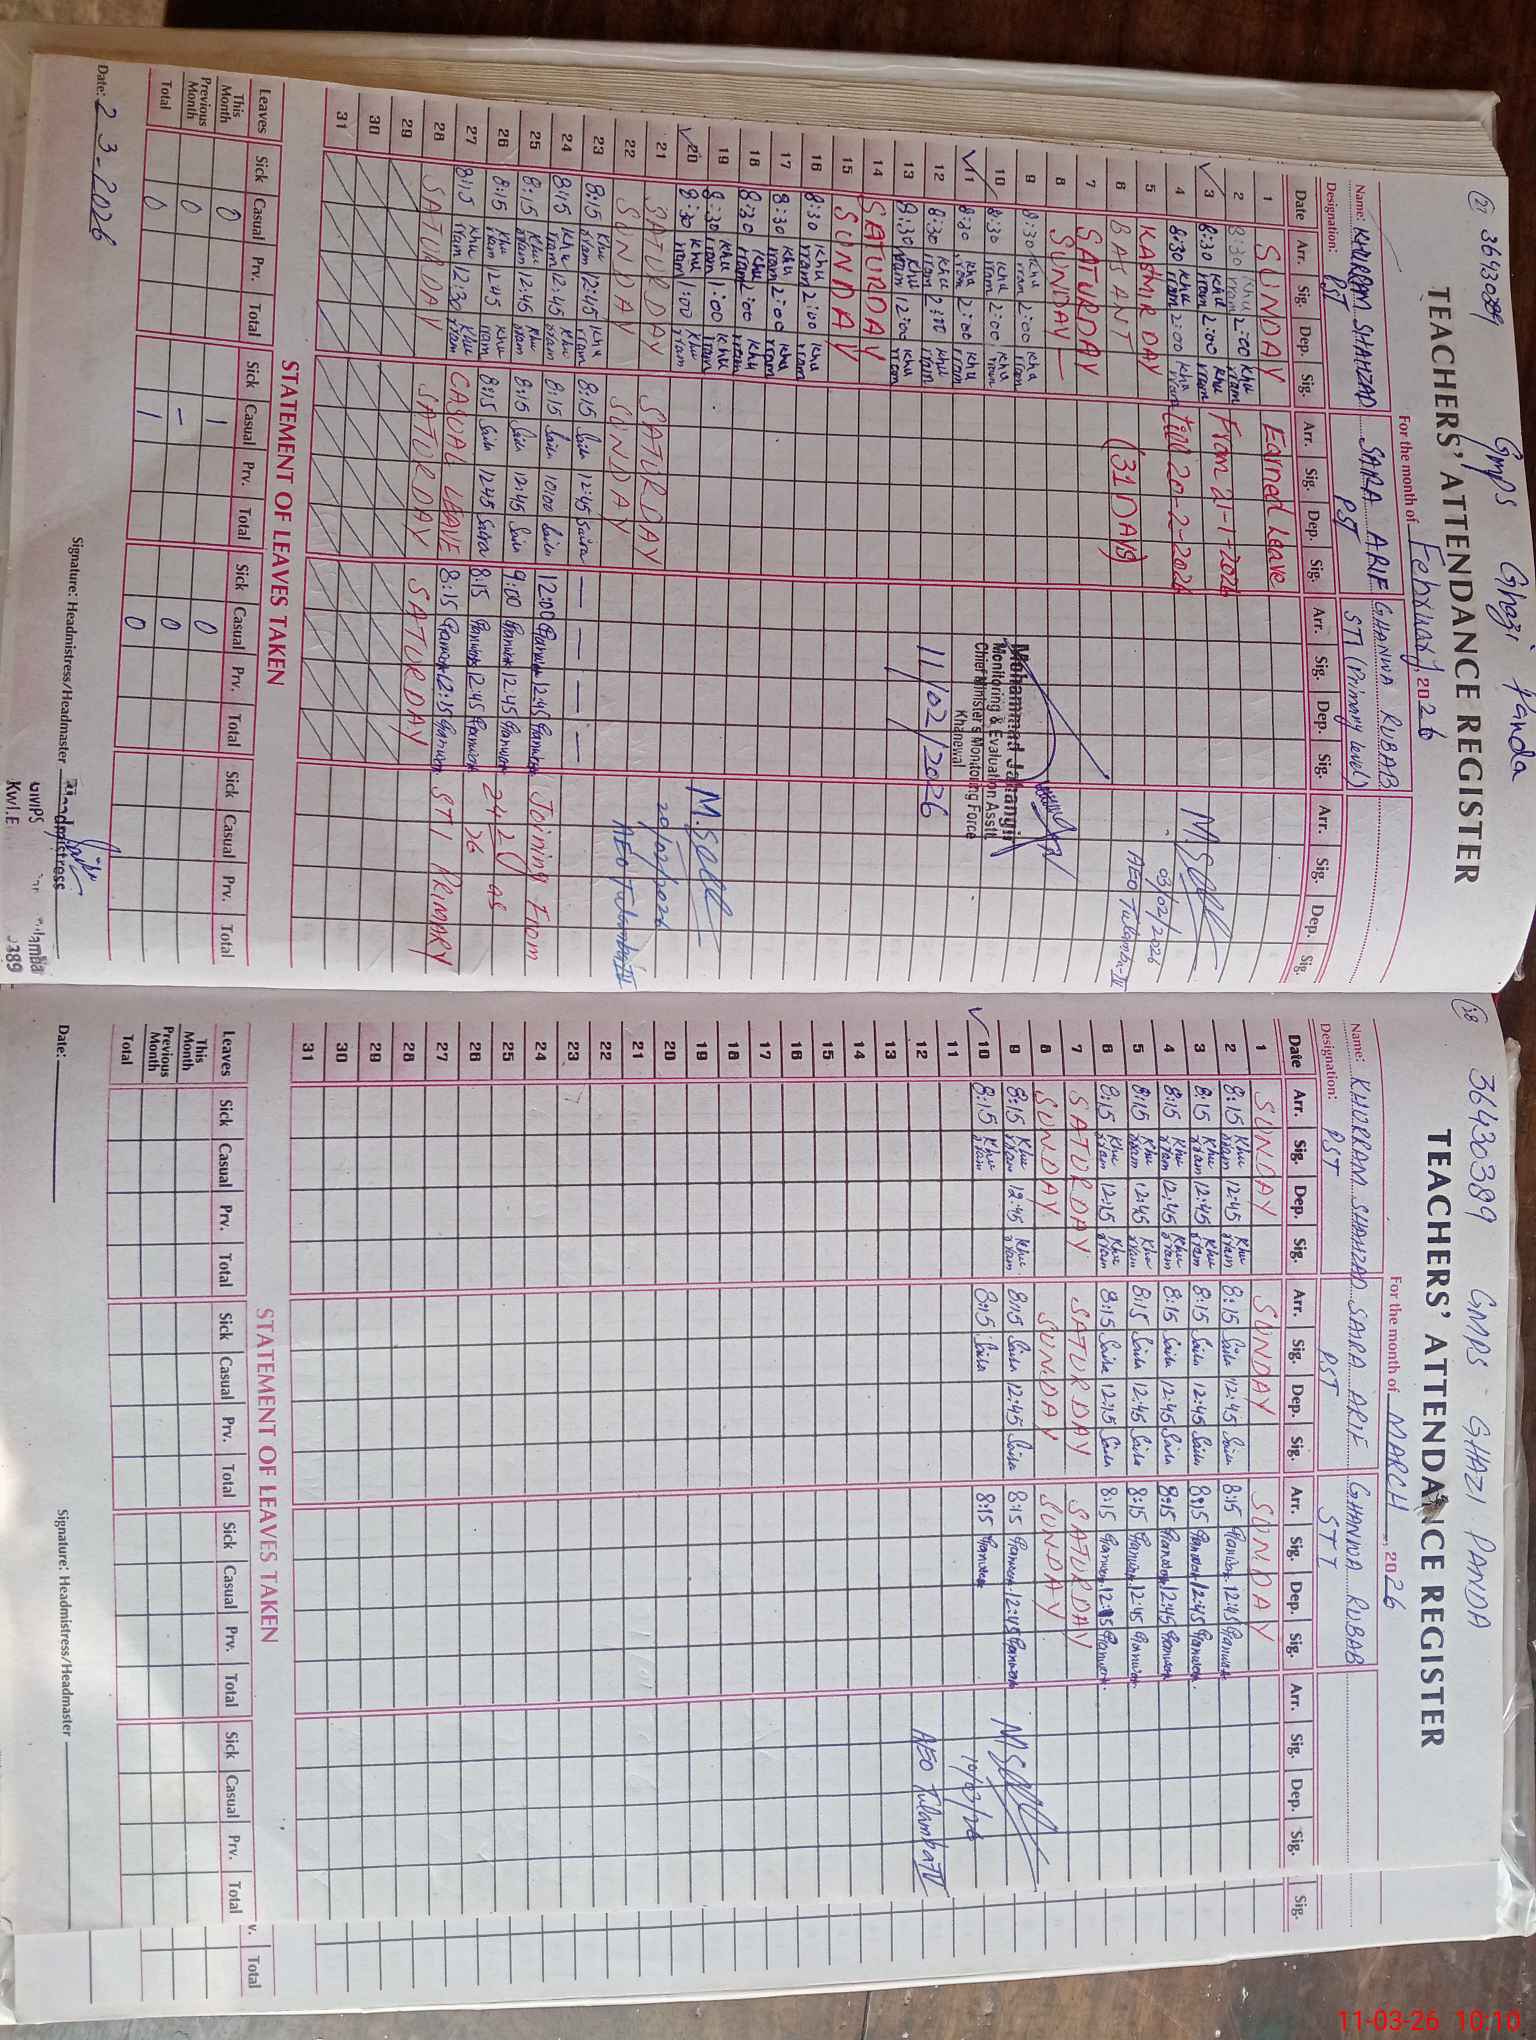 27 36430389 GMPS Ghazi Panda
TEACHERS' ATTENDANCE REGISTER
For the month of February 2026
Name: KHURRAM SHAHZAD SAIRA ARIF GHANWA RUBAB
Designation: PST PST STI (Primary level)
Date Arr. Sig. Dep. Sig. Arr. Sig. Dep. Sig. Arr. Sig. Dep. Sig. Arr. Sig. Dep. Sig.
1 SUNDAY Earned Leave
2 8:30 Khurram 2:00 Khurram From 21-1-2026
3 8:30 Khurram 2:00 Khurram
4 8:30 Khurram 2:00 Khurram till 20-2-2026
5 KASHMIR DAY
6 BASANT (31 DAYS)
7 SATURDAY
8 SUNDAY
9 8:30 Khurram 2:00 Khurram
10 8:30 Khurram 2:00 Khurram
11 8:30 Khurram 2:00 Khurram
12 8:30 Khurram 2:00 Khurram
13 8:30 Khurram 12:00 Khurram
14 SATURDAY
15 SUNDAY
16 8:30 Khurram 2:00 Khurram
17 8:30 Khurram 2:00 Khurram
18 8:30 Khurram 2:00 Khurram
19 8:30 Khurram 1:00 Khurram
20 8:30 Khurram 1:00 Khurram
21 SATURDAY SATURDAY
22 SUNDAY SUNDAY
23 8:15 Khurram 12:45 Khurram 8:15 Saira 12:45 Saira — — — —
24 8:15 Khurram 12:45 Khurram 8:15 Saira 10:00 Saira 12:00 Ghanwa 12:45 Ghanwa
25 8:15 Khurram 12:45 Khurram 8:15 Saira 12:45 Saira 9:00 Ghanwa 12:45 Ghanwa
26 8:15 Khurram 12:45 Khurram 8:15 Saira 12:45 Saira 8:15 Ghanwa 12:45 Ghanwa
27 8:15 Khurram 12:30 Khurram CASUAL LEAVE 8:15 Ghanwa 12:15 Ghanwa
28 SATURDAY SATURDAY SATURDAY
29
30
31
03/02/2026
AEO Tulamba-IV
Mohammad Jahangir
Monitoring & Evaluation Asstt.
Chief Minister's Monitoring Force
Khanewal
11/02/2026
20/02/2026
AEO Tulamba IV
Joining From
24-2-26 as
STI PRIMARY
STATEMENT OF LEAVES TAKEN
Leaves Sick Casual Prv. Total Sick Casual Prv. Total Sick Casual Prv. Total Sick Casual Prv. Total
This Month 0 1 0
Previous Month 0 – 0
Total 0 1 0
Date: 2-3-2026
Signature: Headmistress/Headmaster
Headmistress
GMPS
Kwl.E
28 36430389 GMPS GHAZI PANDA
TEACHERS' ATTENDANCE REGISTER
For the month of MARCH, 2026
Name: KHURRAM SHAHZAD SAIRA ARIF GHANWA RUBAB
Designation: PST PST STI
Date Arr. Sig. Dep. Sig. Arr. Sig. Dep. Sig. Arr. Sig. Dep. Sig. Arr. Sig. Dep. Sig.
1 SUNDAY SUNDAY SUNDAY
2 8:15 Khurram 12:45 Khurram 8:15 Saira 12:45 Saira 8:15 Ghanwa 12:45 Ghanwa
3 8:15 Khurram 12:45 Khurram 8:15 Saira 12:45 Saira 8:15 Ghanwa 12:45 Ghanwa
4 8:15 Khurram 12:45 Khurram 8:15 Saira 12:45 Saira 8:15 Ghanwa 12:45 Ghanwa
5 8:15 Khurram 12:45 Khurram 8:15 Saira 12:45 Saira 8:15 Ghanwa 12:45 Ghanwa
6 8:15 Khurram 12:15 Khurram 8:15 Saira 12:15 Saira 8:15 Ghanwa 12:15 Ghanwa
7 SATURDAY SATURDAY SATURDAY
8 SUNDAY SUNDAY SUNDAY
9 8:15 Khurram 12:45 Khurram 8:15 Saira 12:45 Saira 8:15 Ghanwa 12:45 Ghanwa
10 8:15 Khurram 8:15 Saira 8:15 Ghanwa
11
12
13
14
15
16
17
18
19
20
21
22
23
24
25
26
27
28
29
30
31
10/03/26
AEO Tulamba IV
STATEMENT OF LEAVES TAKEN
Leaves Sick Casual Prv. Total Sick Casual Prv. Total Sick Casual Prv. Total Sick Casual Prv. Total
This Month
Previous Month
Total
Date:
Signature: Headmistress/Headmaster
Sig.
v. Total
11-03-26 10:10